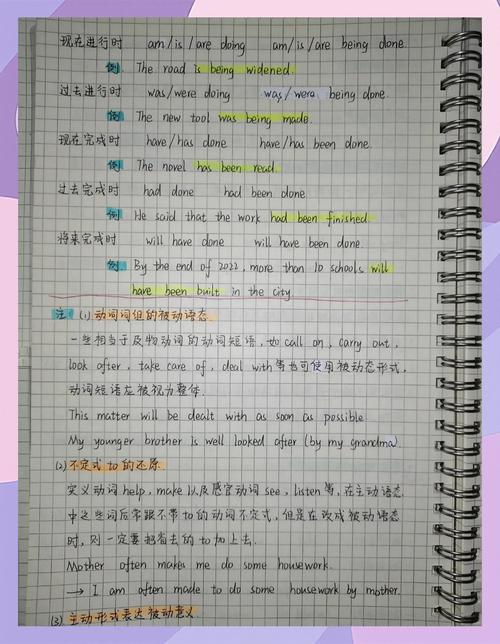 现在进行时 am/is/are doing am/is/are being done.
例. The road is being widened.
过去进行时 was/were doing was/were being done.
例 The new tool was being made.
现在完成时 have/has done have/has been done.
例 The novel has been read.
过去完成时 had done had been done
例 He said that the work had been finished.
将来完成时 will have done will have been done.
例. By the end of 2022, more than 10 schools will
have been built in the city
注: (1) 动词词组的被动语态.
一些相当于及物动词的动词短语, 如 call on, carry out,
look after, take care of, deal with等也可使用被动态形式,
动词短语应被视为整体.
This matter will be dealt with as soon as possible
My younger brother is well looked after (by my grandma)
(2) 不定式to的还原.
实义动词help, make以及感官动词see, listen等, 在主动语态
中这些词后常跟不带to的动词不定式, 但是在改成被动语态
时, 则一定要把省去的to加上去.
Mother often makes me do some housework.
→ I am often made to do some housework by mother.
(3) 主动形式表达被动意义